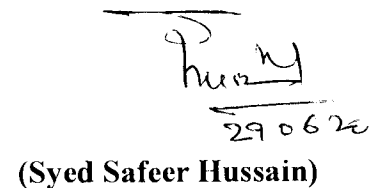 290620
(Syed Safeer Hussain)